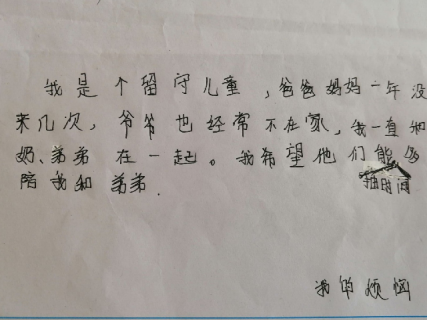 我是个留守儿童，爸爸妈妈一年没
来几次，爷爷也经常不在家，我一直和
奶、弟弟在一起。我希望他们能多
抽时间
陪我和弟弟.
我的烦恼